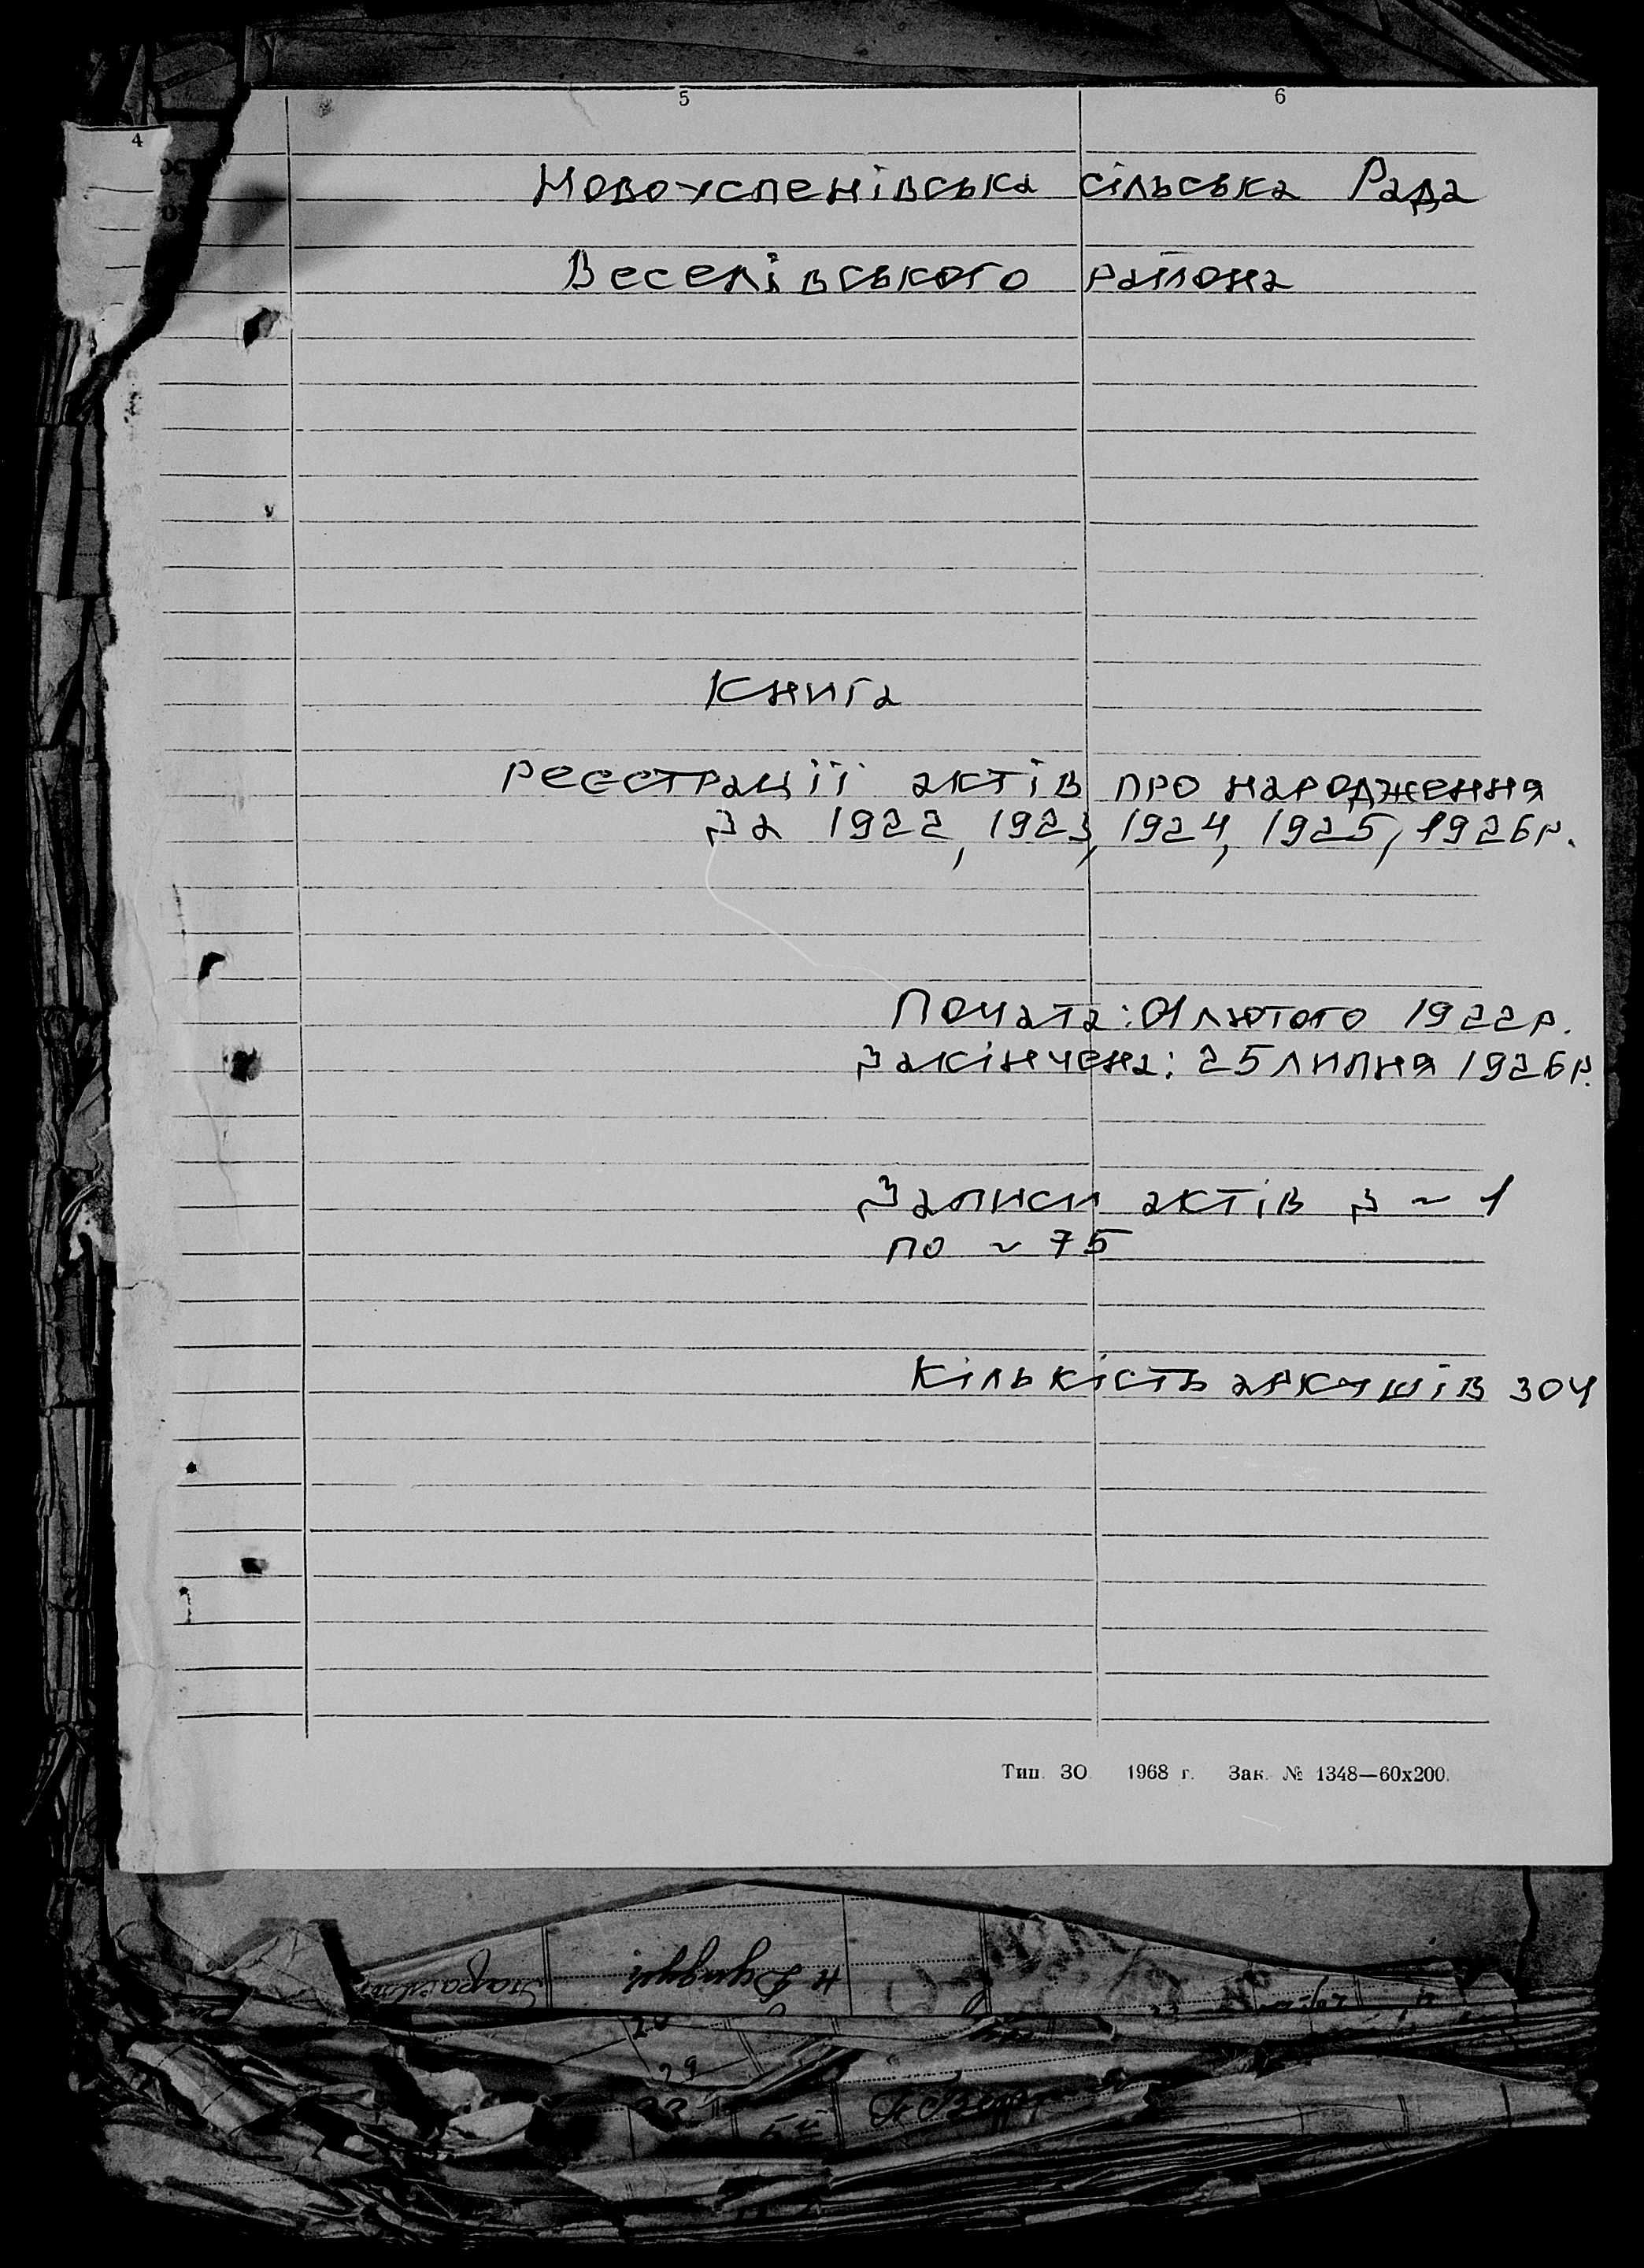 4 5 6
Новоуспенівська сільська Рада
Веселівського района
Книга
реєстрації актів про народження
за 1922, 1923, 1924, 1925, 1926р.
Почата: 01 лютого 1922р.
Закінчена: 25 липня 1926р.
Записи актів з ~ 1
по ~ 75
Кількість аркушів 304
Тип. ЗО. 1968 г. Зак. № 1348—60х200.
29